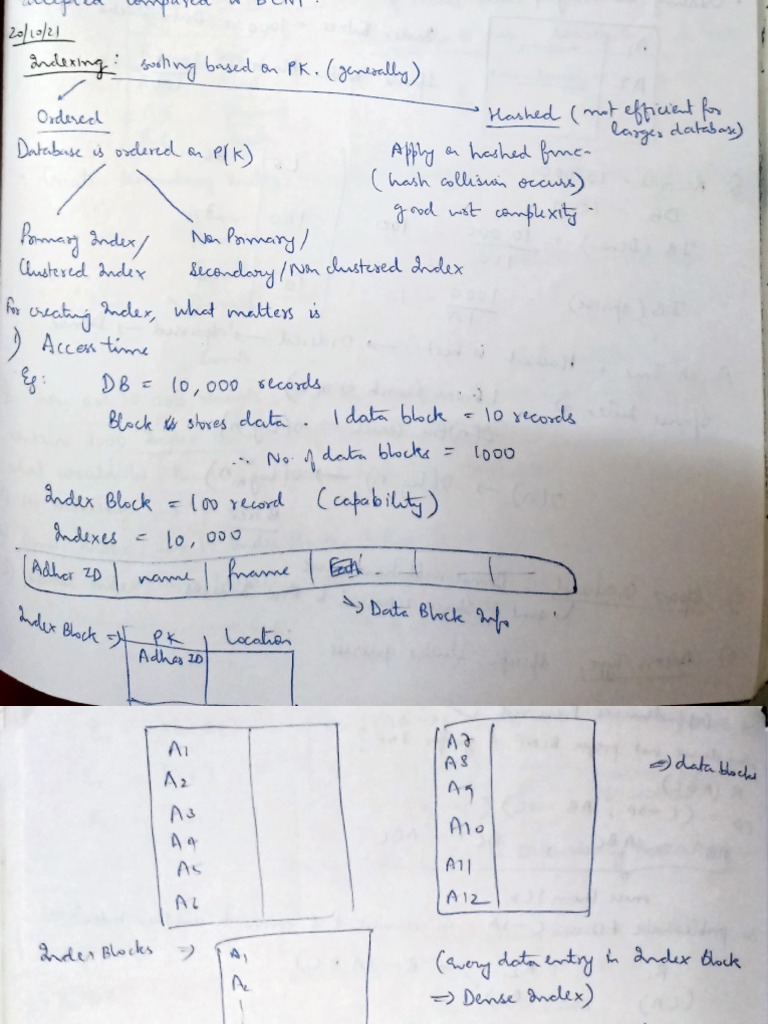 accepted compared to BCNF.
20/10/21
Indexing: sorting based on PK. (generally)
Ordered
Hashed (not efficient for
larger database)
Database is ordered on P(K)
Apply on hashed func-
(hash collision occurs)
good not complexity
Primary Index/
Clustered Index
Non Primary/
Secondary/Non clustered Index
For creating Index, what matters is
1) Access time
Eg: DB = 10,000 records
Block stores data. 1 data block = 10 records
∴ No. of data blocks = 1000
Index Block = 100 record (capability)
Indexes = 10,000
Adhar ID | name | fname
=> Data Block Info
Index Block => PK | Location
Adhar ID
A1
A2
A3
A4
A5
A6
A7
A8
A9
A10
A11
A12
=> data blocks
Index Blocks =>
A1
A2
(every data entry in Index block
=> Dense Index)